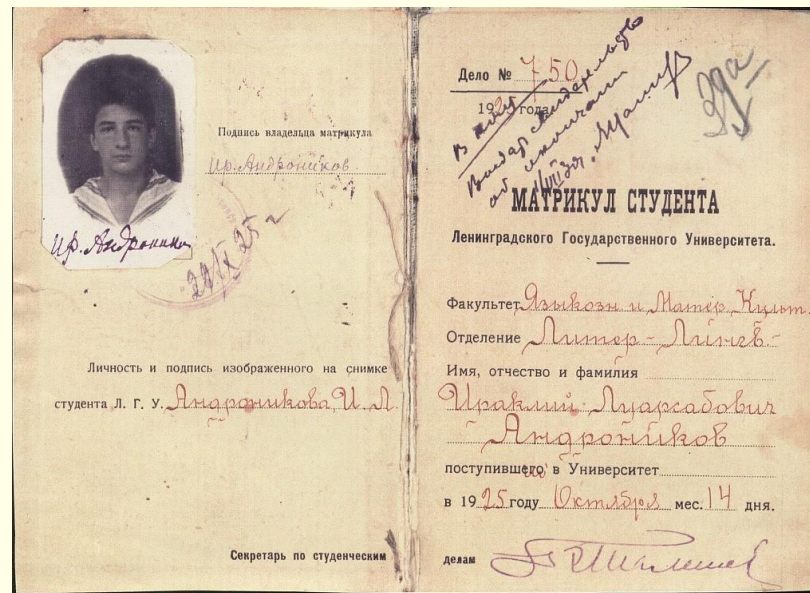 Подпись владельца матрикула
Ир. Андроников
Ир. Андроников
22/IX 25 г
Личность и подпись изображенного на снимке
студента Л. Г. У. Андроникова И. Л.
Секретарь по студенческим
Дело № 750
1925 года
Выдано свидетельство
об окончании
39а
МАТРИКУЛ СТУДЕНТА
Ленинградского Государственного Университета.
Факультет Языкозн и Матер. Культ.
Отделение Литер-Лингв-
Имя, отчество и фамилия
Ираклий Луарсабович
Андроников
поступившего в Университет
в 1925 году Октября мес. 14 дня.
делам